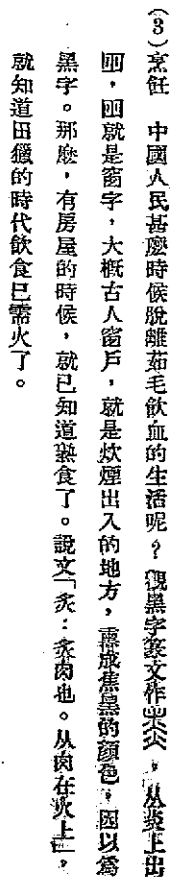 (3)烹飪　中國人民甚麼時候脫離茹毛飲血的生活呢？觀黑字篆文作𪐗，从炎上出
囪，囪就是窗字，大概古人窗戶，就是炊煙出入的地方，熏成焦黑的顏色，因以爲
黑字。那麼，有房屋的時候，就已知道熟食了。說文「炙：炙肉也。从肉在火上」，
就知道田獵的時代飲食已需火了。